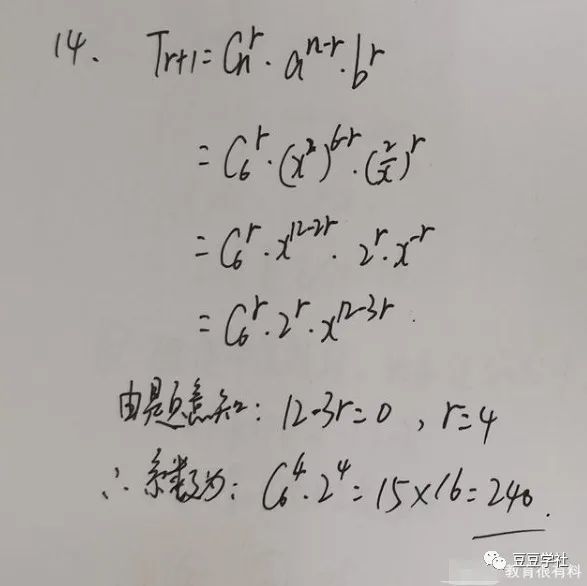 14. Tr+1 = Cn^r · a^(n-r) · b^r
= C6^r · (x^2)^(6-r) · (2/x)^r
= C6^r · x^(12-2r) · 2^r · x^(-r)
= C6^r · 2^r · x^(12-3r).
由题意知: 12-3r=0 , r=4
∴ 系数为: C6^4 · 2^4 = 15×16 = 240.
豆豆学社
教育很有料